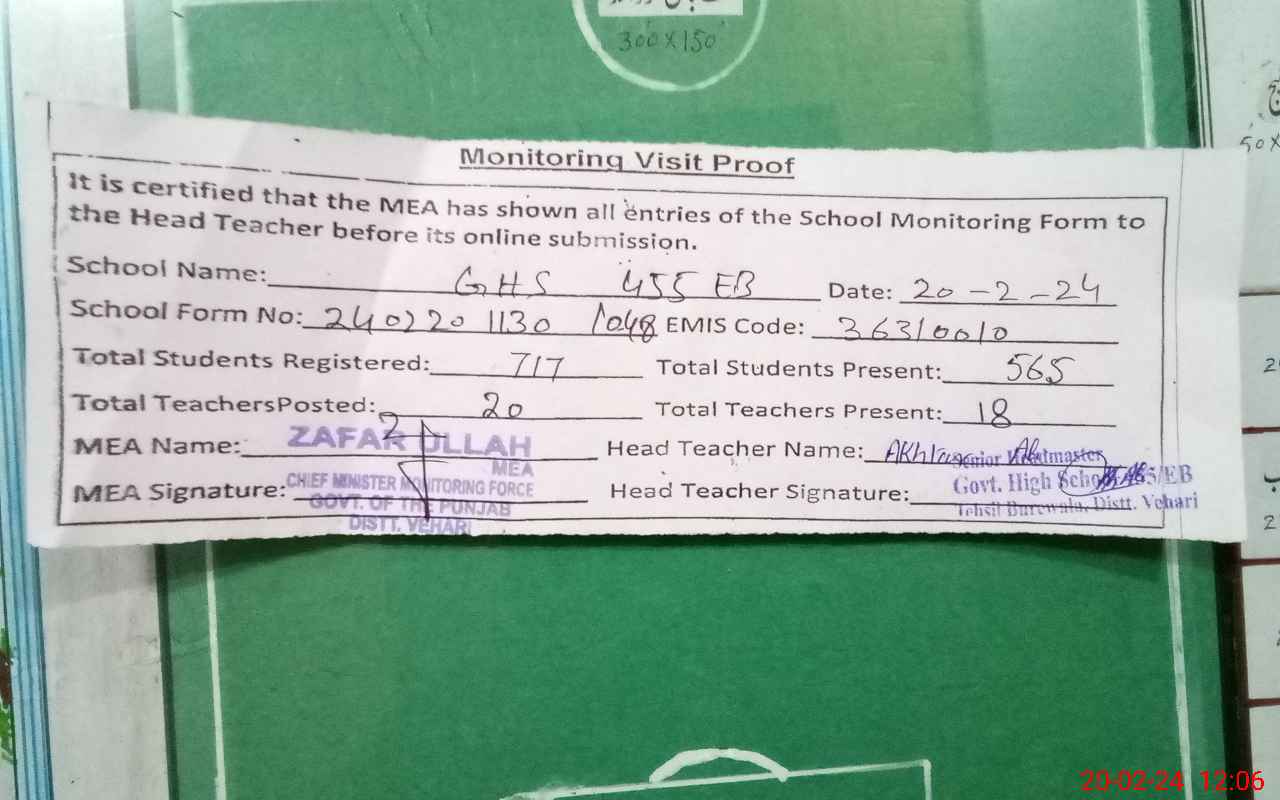 300×150
50×
Monitoring Visit Proof
It is certified that the MEA has shown all entries of the School Monitoring Form to
the Head Teacher before its online submission.
School Name: GHS 455 EB Date: 20-2-24
School Form No: 240220 1130 1048 EMIS Code: 36310010
Total Students Registered: 717 Total Students Present: 565
Total TeachersPosted: 20 Total Teachers Present: 18
MEA Name: ZAFAR ULLAH Head Teacher Name:
MEA
MEA Signature: Head Teacher Signature:
CHIEF MINISTER MONITORING FORCE
GOVT. OF THE PUNJAB
DISTT. VEHARI
Senior Headmaster
Govt. High School 455/EB
Tehsil Burewala, Distt. Vehari
20-02-24 12:06